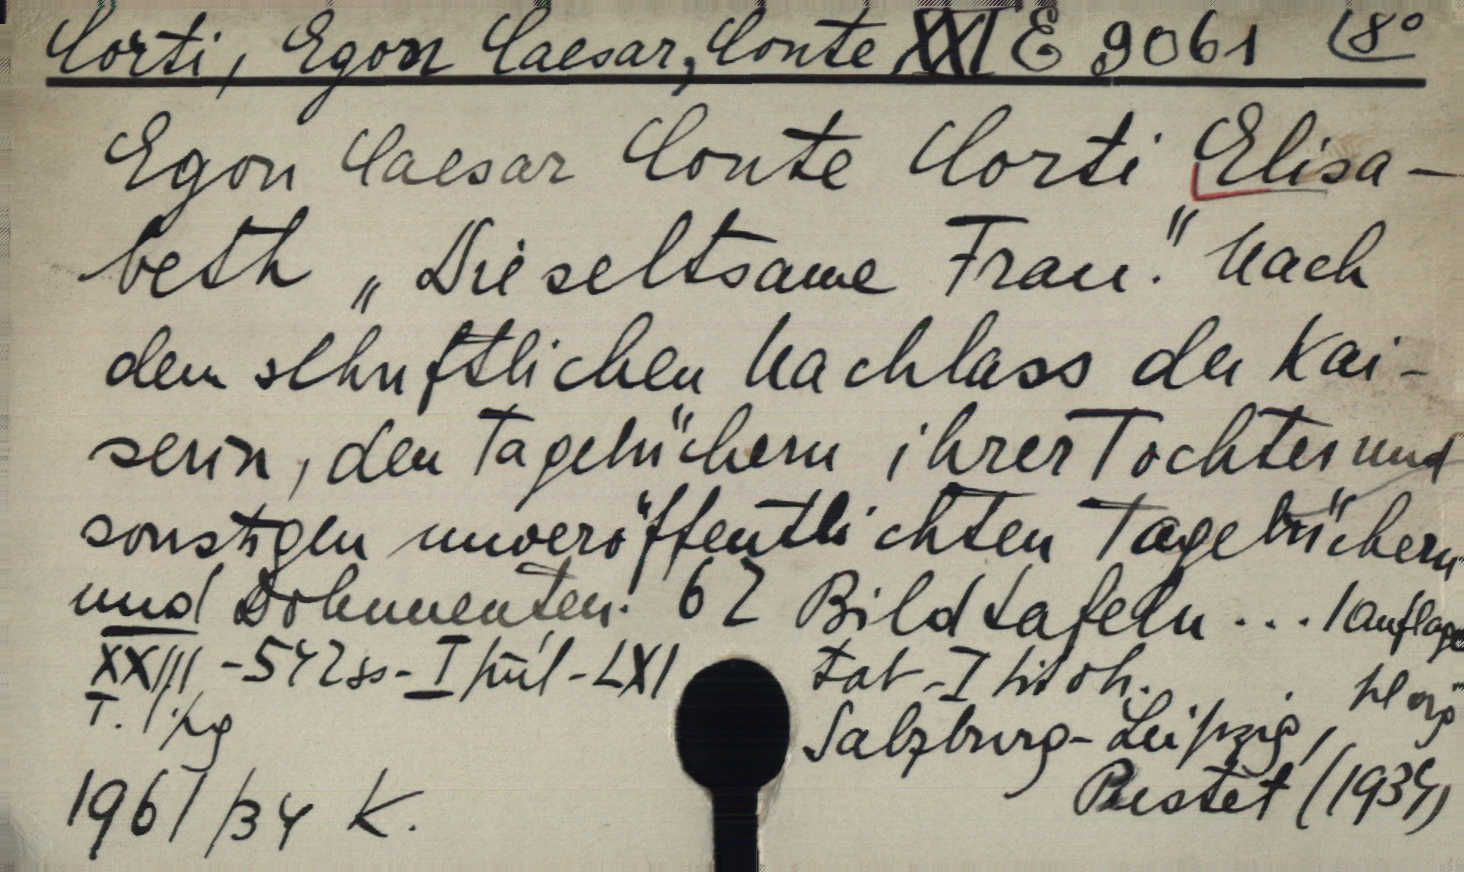 Corti, Egon Caesar, Conte XXI E 9061 (8°
Egon Caesar Conte Corti Elisa-
beth „Die seltsame Frau." Nach
dem schriftlichen Nachlass der Kai-
serin, den Tagebüchern ihrer Tochter und
sonstigen unveröffentlichten Tagebüchern
und Dokumenten. 62 Bildtafeln ... 1 Auflage
XXIII, -542 ss - I - LXI tab - I
T.
Salzburg - Leipzig,
Pustet (1934)
1961/34 K.